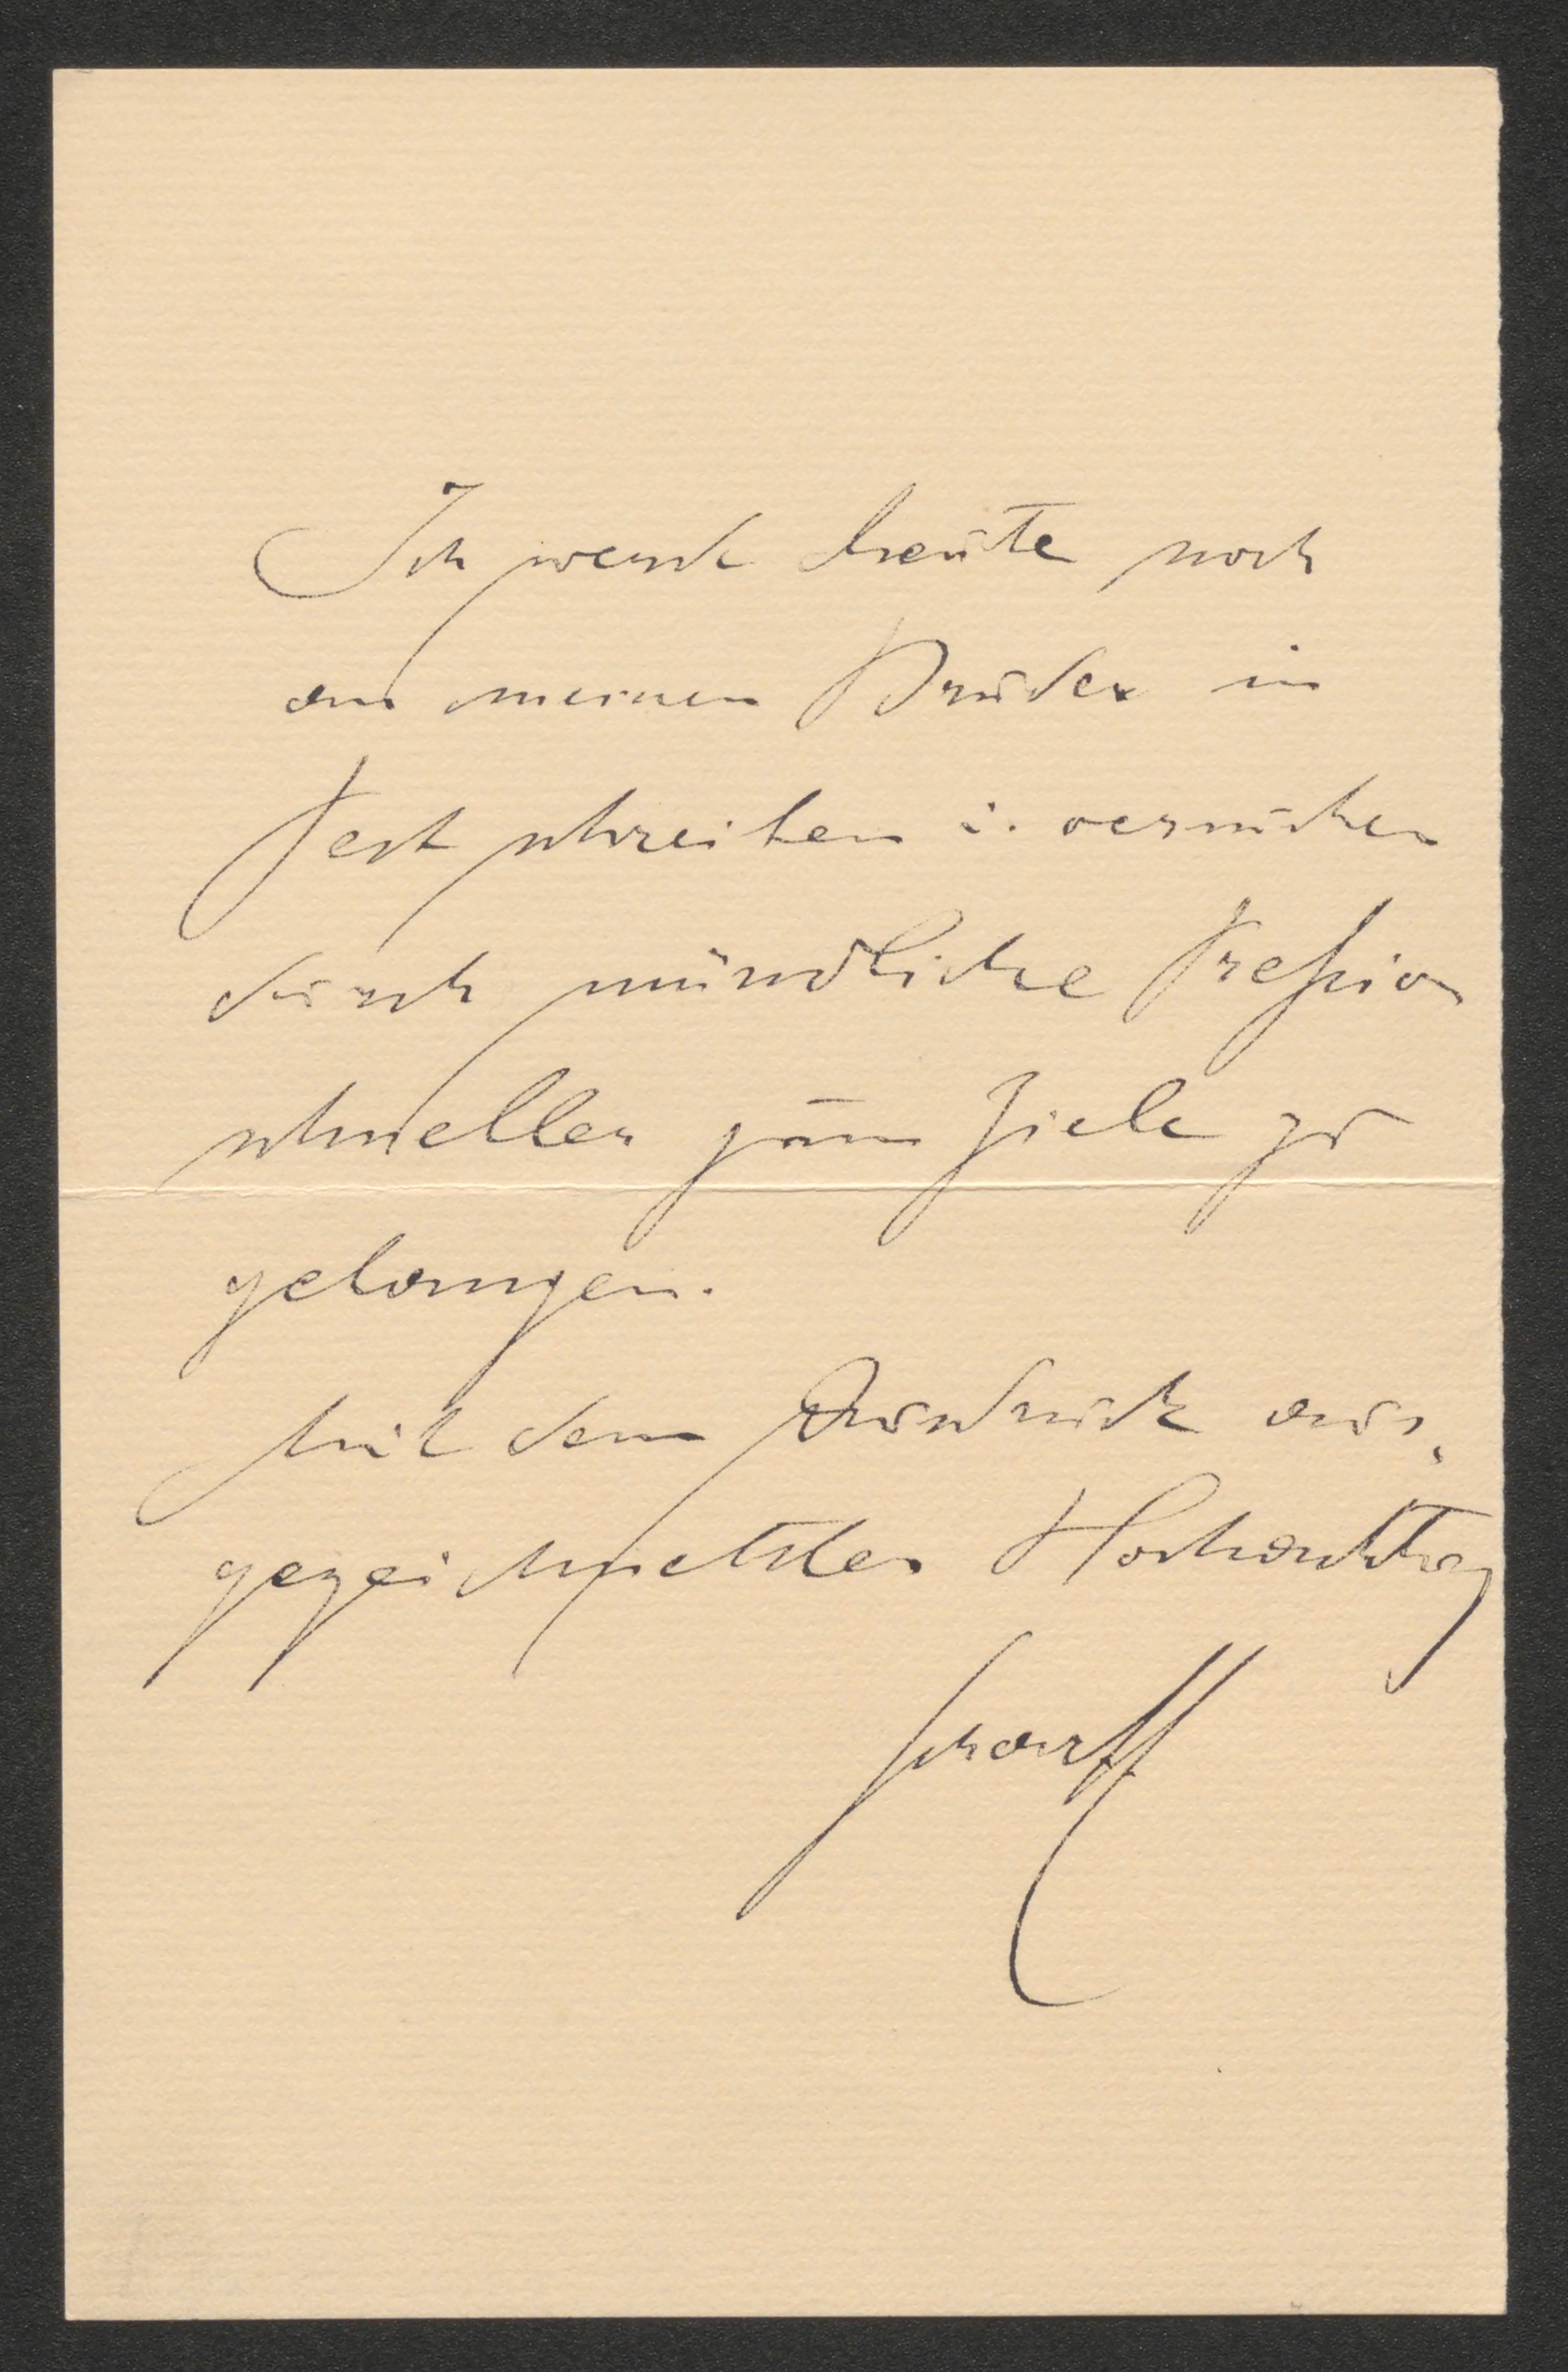 Ich werde heute noch
an meinen Bruder in
Pest schreiben u. versuchen
durch mündliche Preßion
schneller zum Ziele zu
gelangen.
Mit dem Ausdruck aus-
gezeichnetster Hochachtung
Scharff